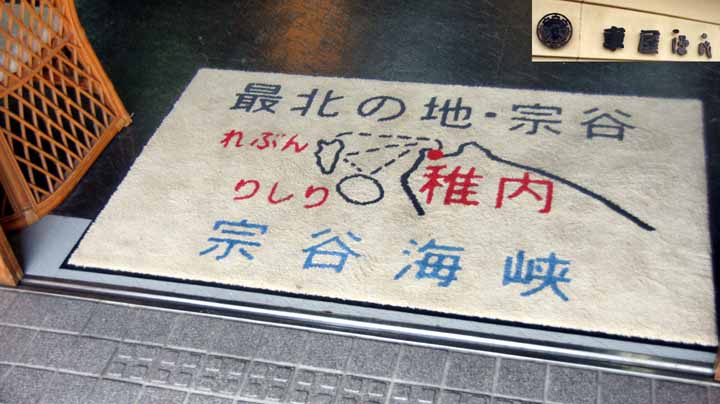 最北の地・宗谷
れぶん
りしり
稚内
宗谷海峡